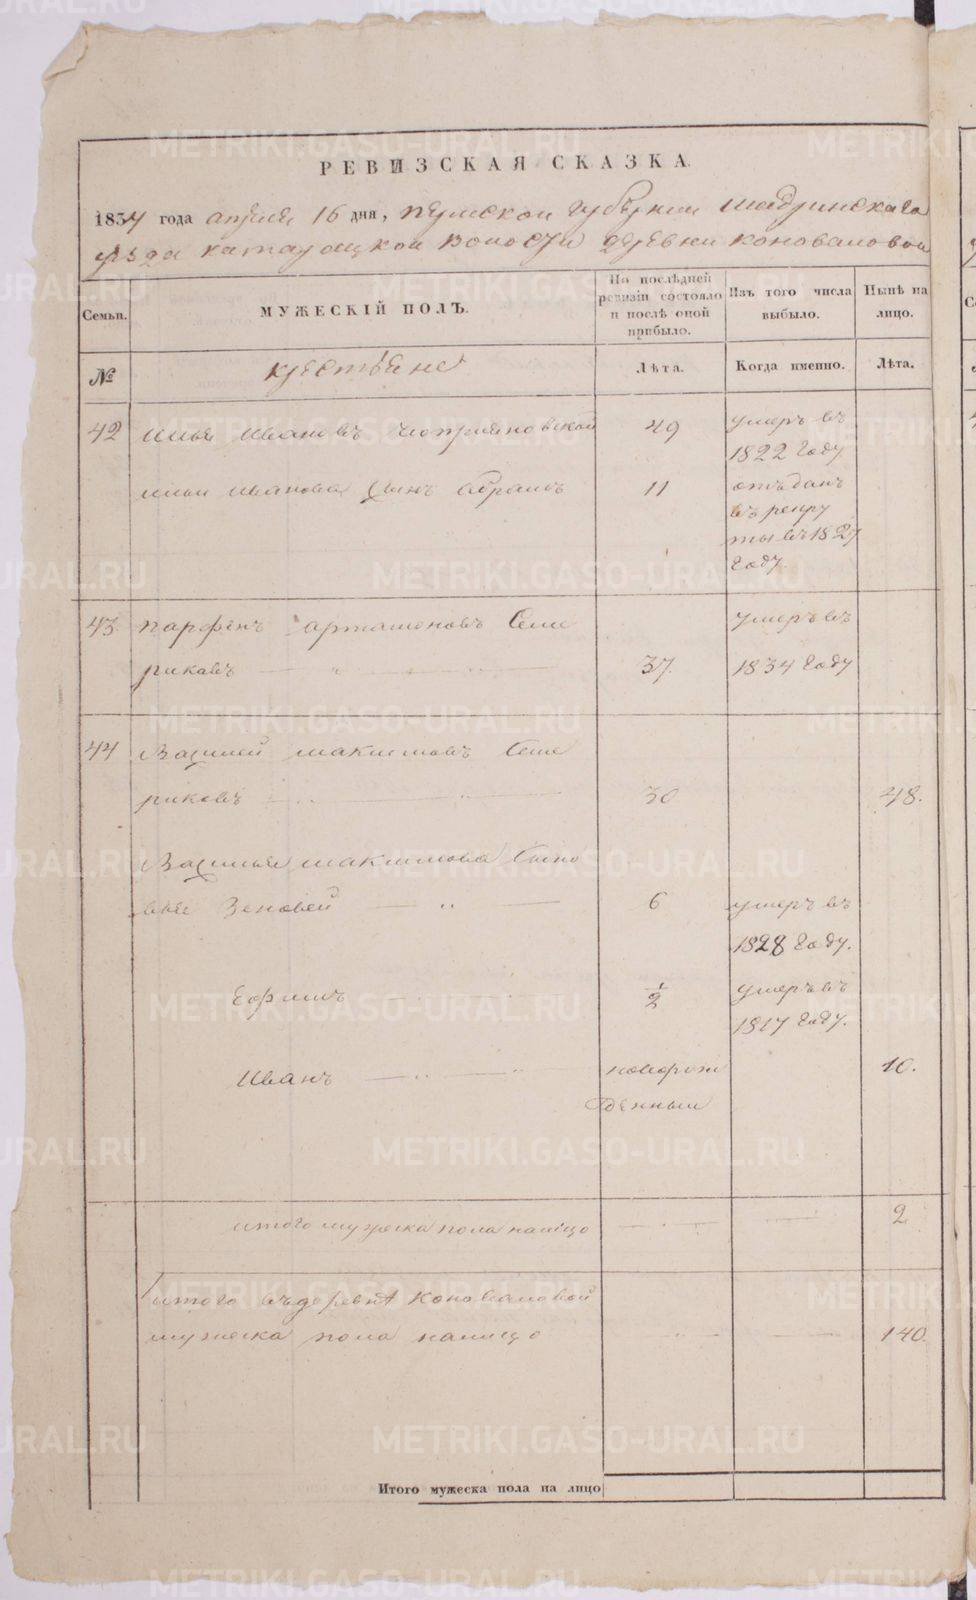 РЕВИЗСКАЯ СКАЗКА
1834 года апреля 16 дня, пермской губернии Шадринскаго
уезда катайской волости деревни коноваловой
Семьи.
МУЖЕСКІЙ ПОЛЪ.
По послѣдней ревизіи состояло и послѣ оной прибыло.
Изъ того числа выбыло.
Нынѣ на лицо.
№
крестьяне
Лѣта.
Когда именно.
Лѣта.
42 илья Ивановъ 49 умеръ въ
1822 году
ильи иванова сынъ абрамъ 11 отъданъ
въ рекру
ты въ 1827
году.
43 парфенъ артамоновъ Семе умеръ въ
риковъ 37. 1834 году
44 Василей максимовъ Семе
риковъ 30 48.
Василья максимова сыно
вья Зеновей 6 умеръ въ
1828 году.
Ефимъ 1/2 умеръ въ
1817 году.
Иванъ новорож 10.
денный
итого мужеска пола налицо 2
итого въ деревнѣ коноваловой
мужеска пола налицо 140.
Итого мужеска пола на лицо
METRIKI.GASO-URAL.RU